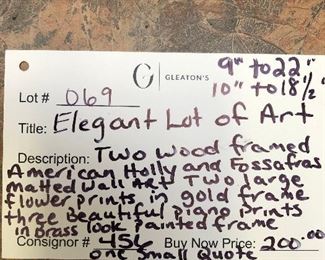 GLEATON'S
9" to 22"
10" to 18 1/2"
Lot # 069
Title: Elegant Lot of Art
Description: Two wood framed
American Holly and Fossafras
matted wall Art Two large
flower prints in gold frame
three beautiful piano prints
in Brass look painted frame
Consignor # 456 Buy Now Price: 200.00
one small Quote